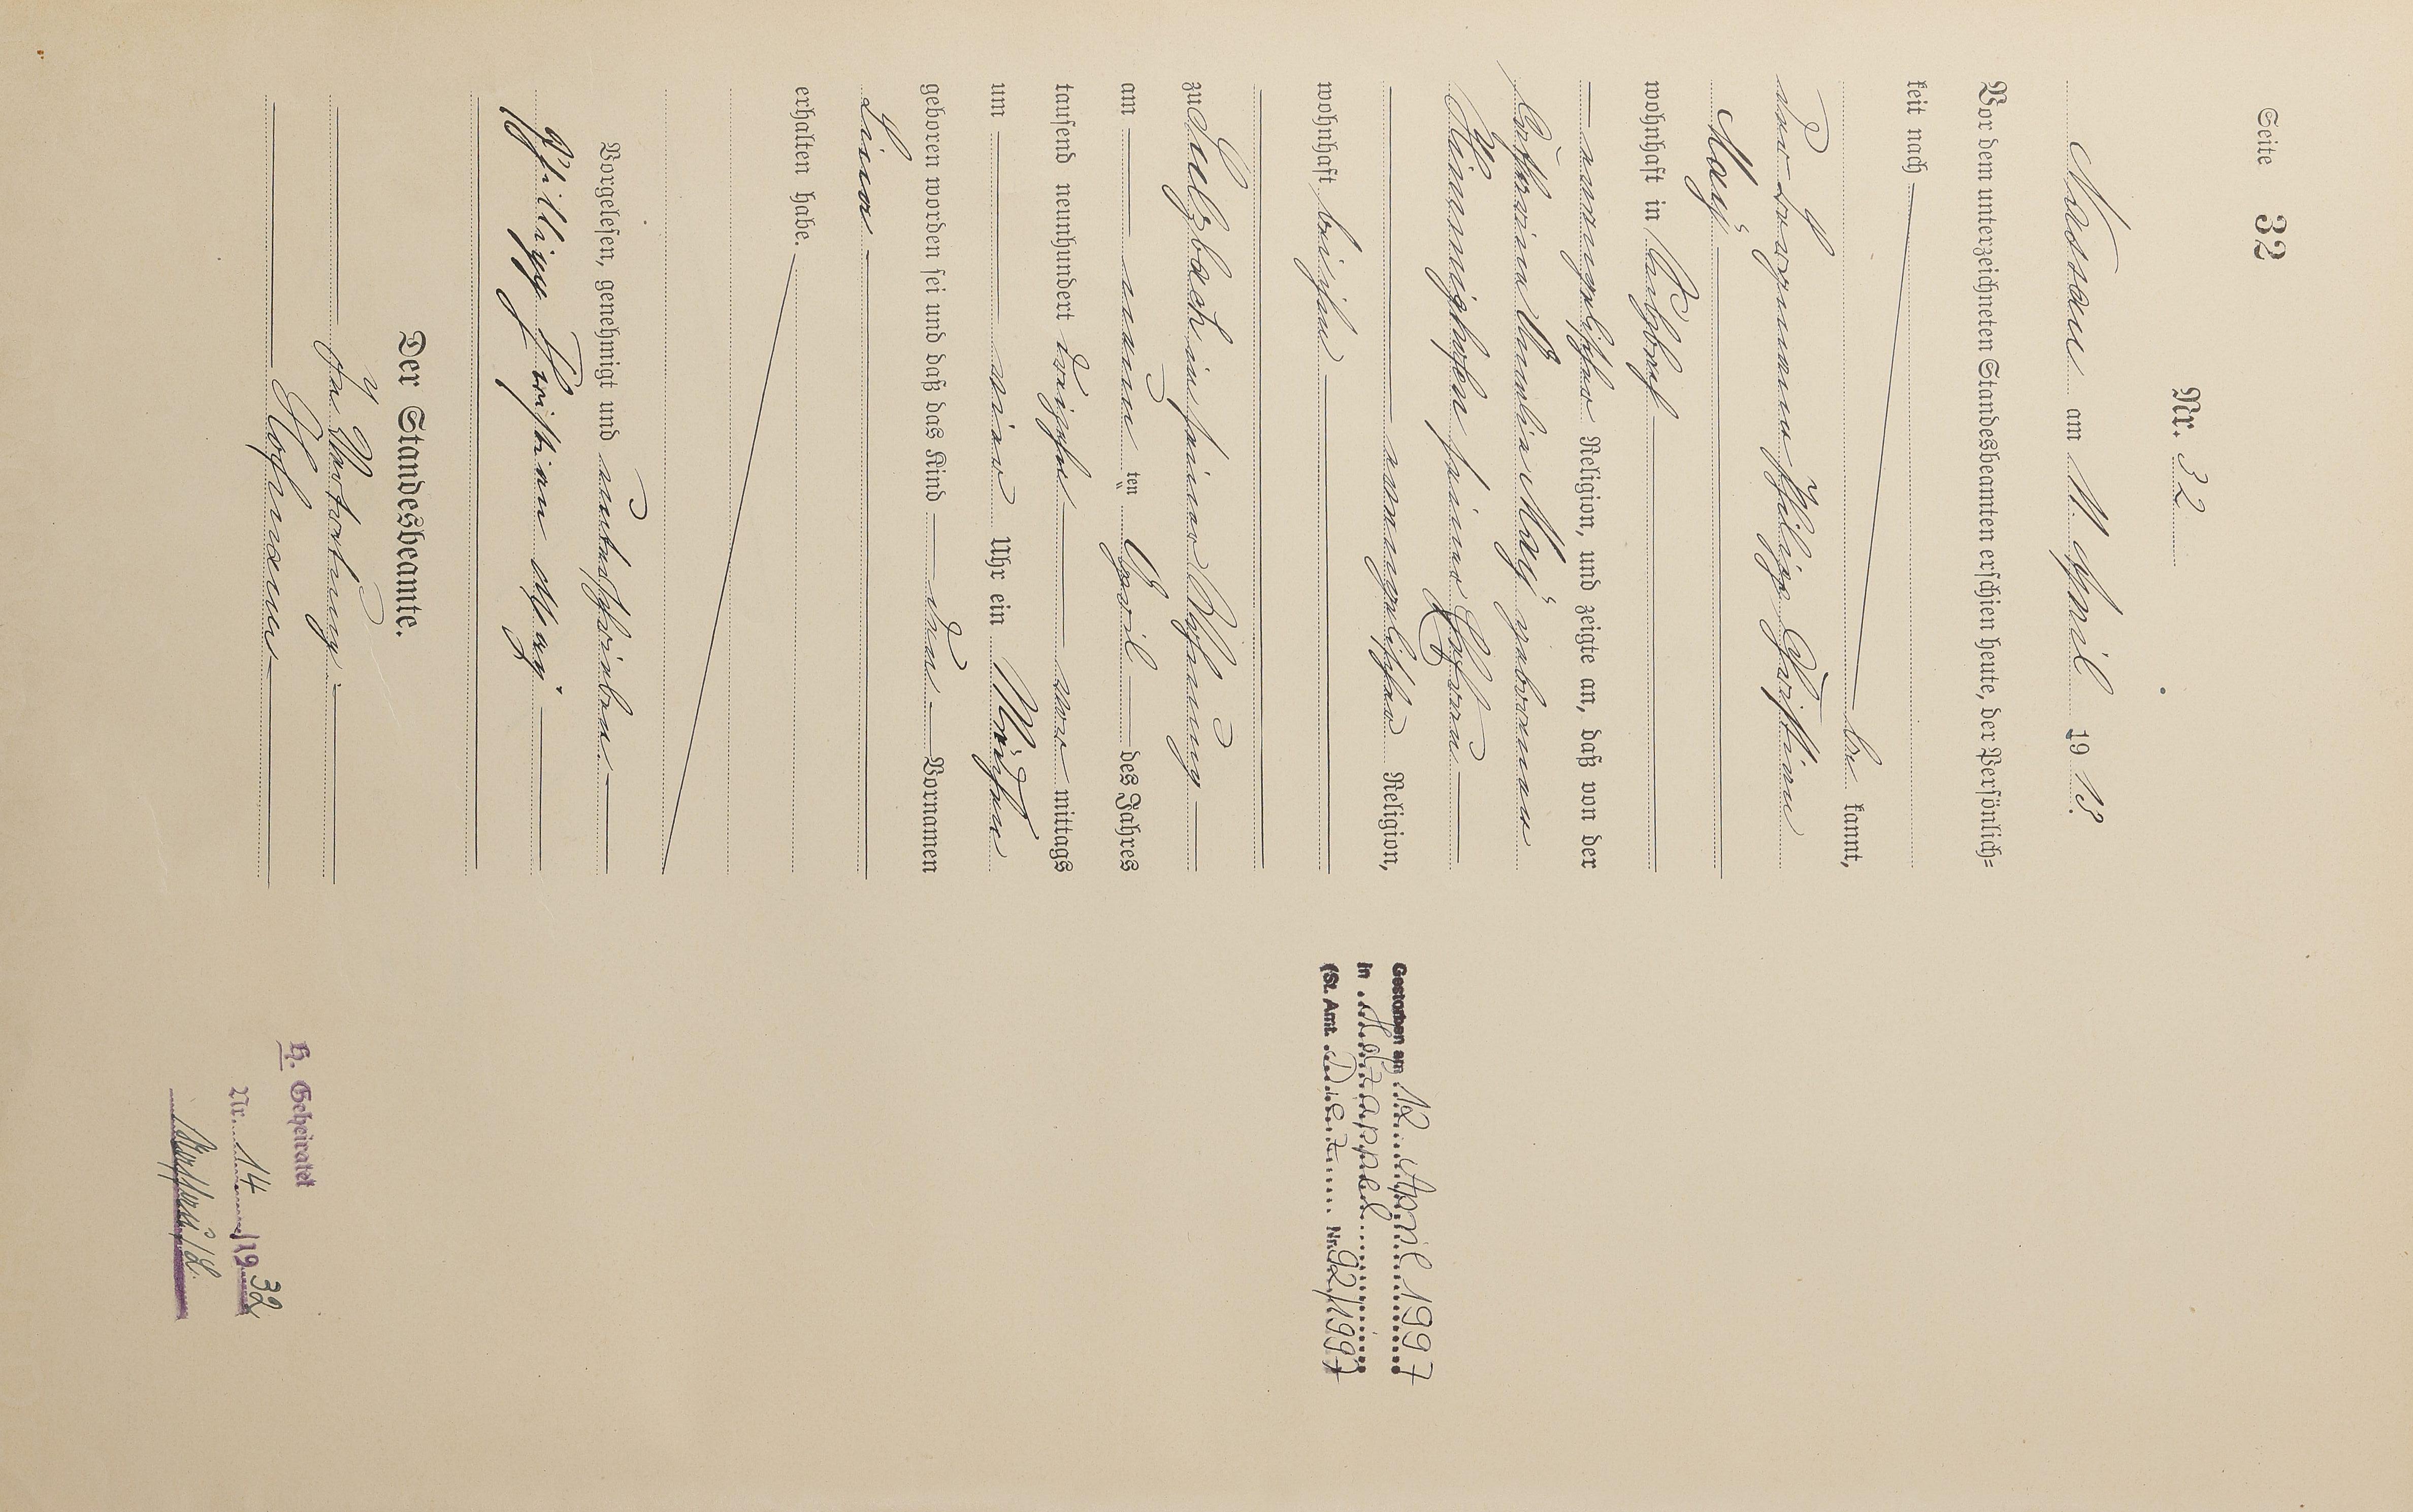 Seite 32
Nr. 32
Nassau am 11. April 1913.
Vor dem unterzeichneten Standesbeamten erschien heute, der Persönlich=
keit nach
be kannt,
der Bergmann Philipp Christian
May
wohnhaft in Sulzbach
evangelischer Religion, und zeigte an, daß von der
Catharina Amalia May geborenen
Himmighofen seiner Ehefrau
evangelischer Religion,
wohnhaft bei ihm
zu Sulzbach in seiner Wohnung
am neun ten April des Jahres
tausend neunhundert dreizehn vor mittags
um vier Uhr ein Mädchen
geboren worden sei und daß das Kind den Vornamen
Lina
erhalten habe.
Vorgelesen, genehmigt und unterschrieben
Philipp Christian May
Der Standesbeamte.
In Vertretung
Hofmann
Gestorben am 12. April 1997
in Holzappel
(St. Amt. Diez Nr. 92/1997)
H. Geheiratet
Nr. 14/1932